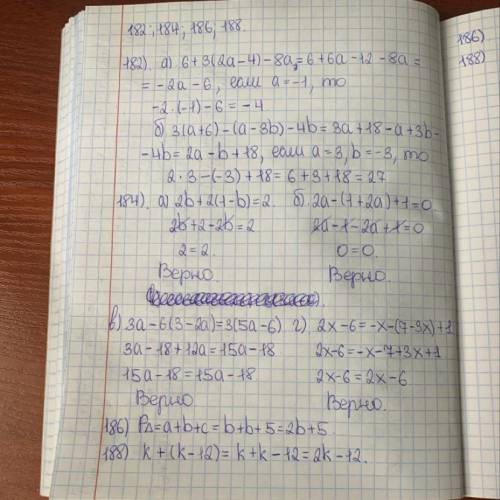 182; 184; 186, 188.
182). а) 6+3(2a-4)-8a,=6+6a-12-8a=
=-2a-6, если a=-1, то
-2·(-1)-6=-4
б) 3(a+6)-(a-3b)-4b=3a+18-a+3b-
-4b=2a-b+18, если a=3, b=-3, то
2·3-(-3)+18=6+3+18=27
184). а) 2b+2(1-b)=2. б). 2a-(1+2a)+1=0
2b+2-2b=2 2a-1-2a+1=0
2=2. 0=0.
Верно Верно.
в) 3a-6(3-2a)=3(5a-6) г) 2x-6=-x-(7-3x)+1
3a-18+12a=15a-18 2x-6=-x-7+3x+1
15a-18=15a-18 2x-6=2x-6
Верно Верно.
186) PΔ=a+b+c=b+b+5=2b+5.
188) k+(k-12)=k+k-12=2k-12.
186)
188)